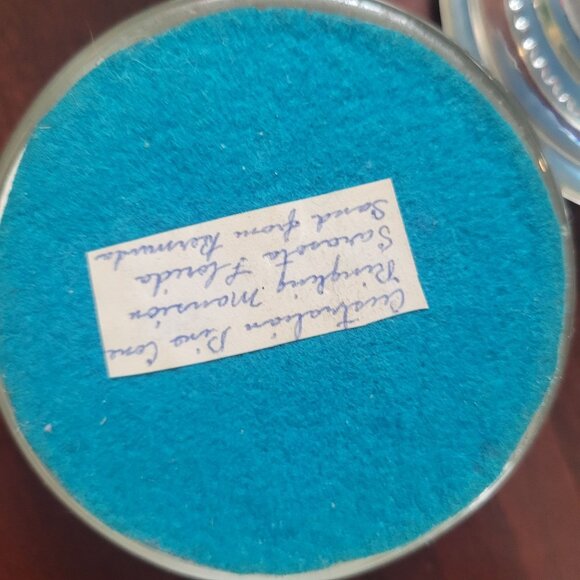 Australian Pine Cone
Ringling Mansion
Sarasota Florida
Sand from Bermuda